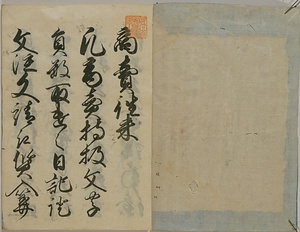 商賣往来
凡商賣持扱文字
員数取遣之日記證
文注文請取質入算